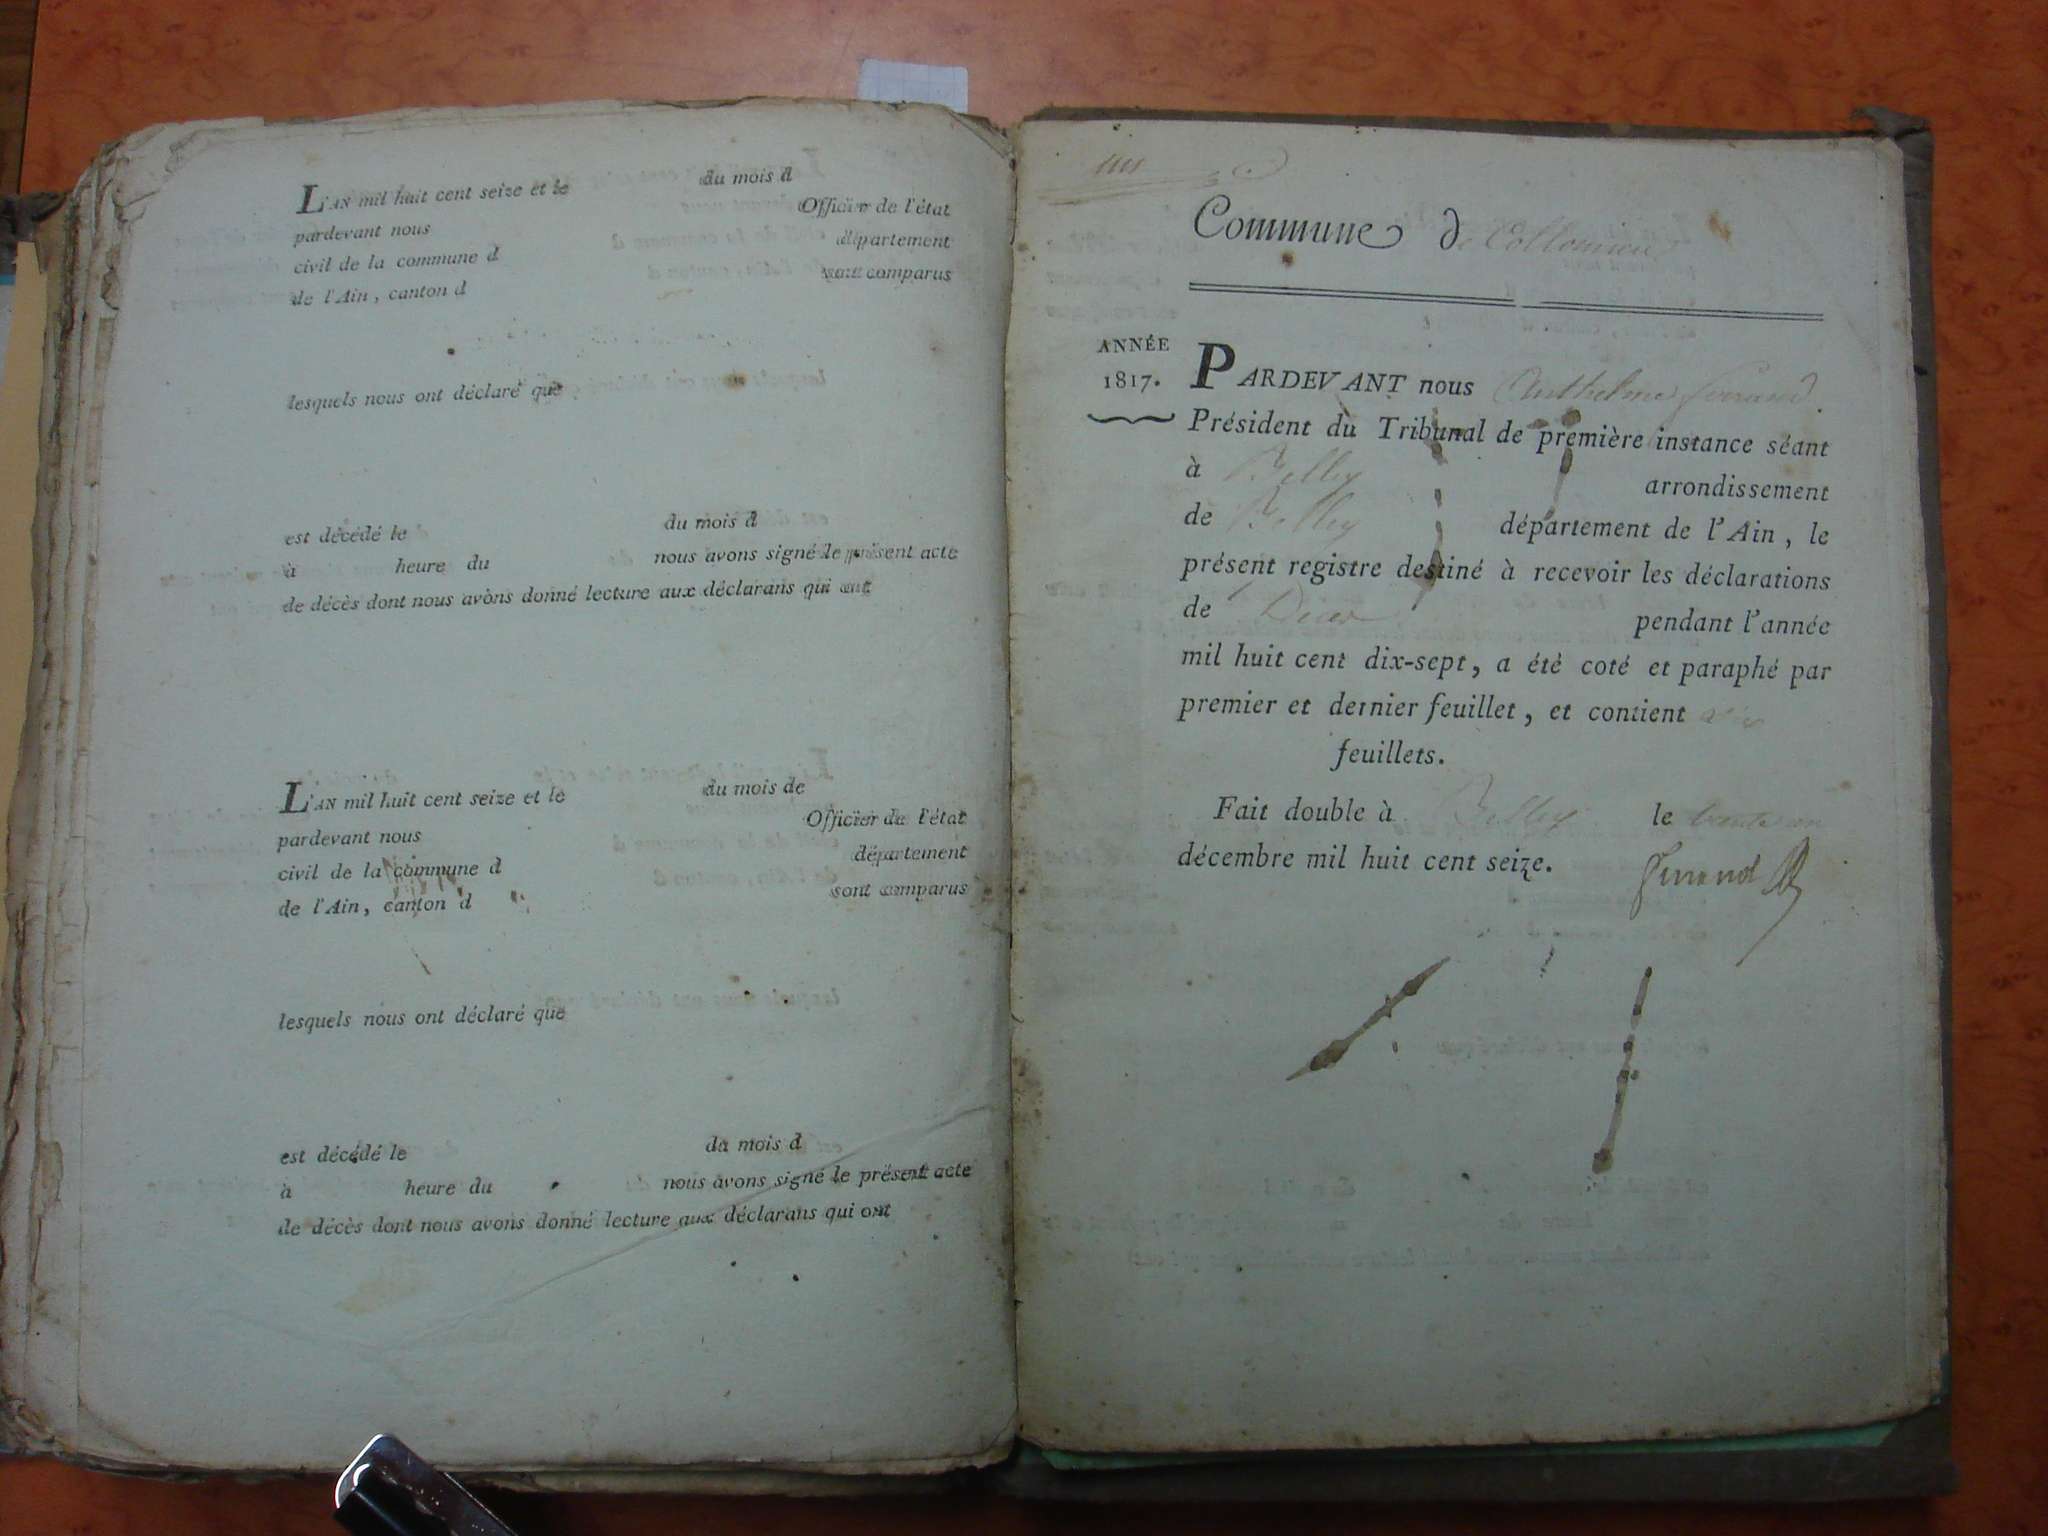 L'AN mil huit cent seize et le du mois d
pardevant nous Officier de l'état
civil de la commune d département
de l'Ain, canton d sont comparus
lesquels nous ont déclaré que
est décédé le du mois d
à heure du nous avons signé le présent acte
de décès dont nous avons donné lecture aux déclarans qui ont
L'AN mil huit cent seize et le du mois de
pardevant nous Officier de l'état
civil de la commune d département
de l'Ain, canton d sont comparus
lesquels nous ont déclaré que
est décédé le du mois d
à heure du nous avons signé le présent acte
de décès dont nous avons donné lecture aux déclarans qui ont
Commune de Collomieu
ANNÉE
1817.
PARDEVANT nous Anthelme Ferrand
Président du Tribunal de première instance séant
à Belley arrondissement
de Belley département de l'Ain, le
présent registre destiné à recevoir les déclarations
de Décès pendant l'année
mil huit cent dix-sept, a été coté et paraphé par
premier et dernier feuillet, et contient
feuillets.
Fait double à Belley le trente un
décembre mil huit cent seize.